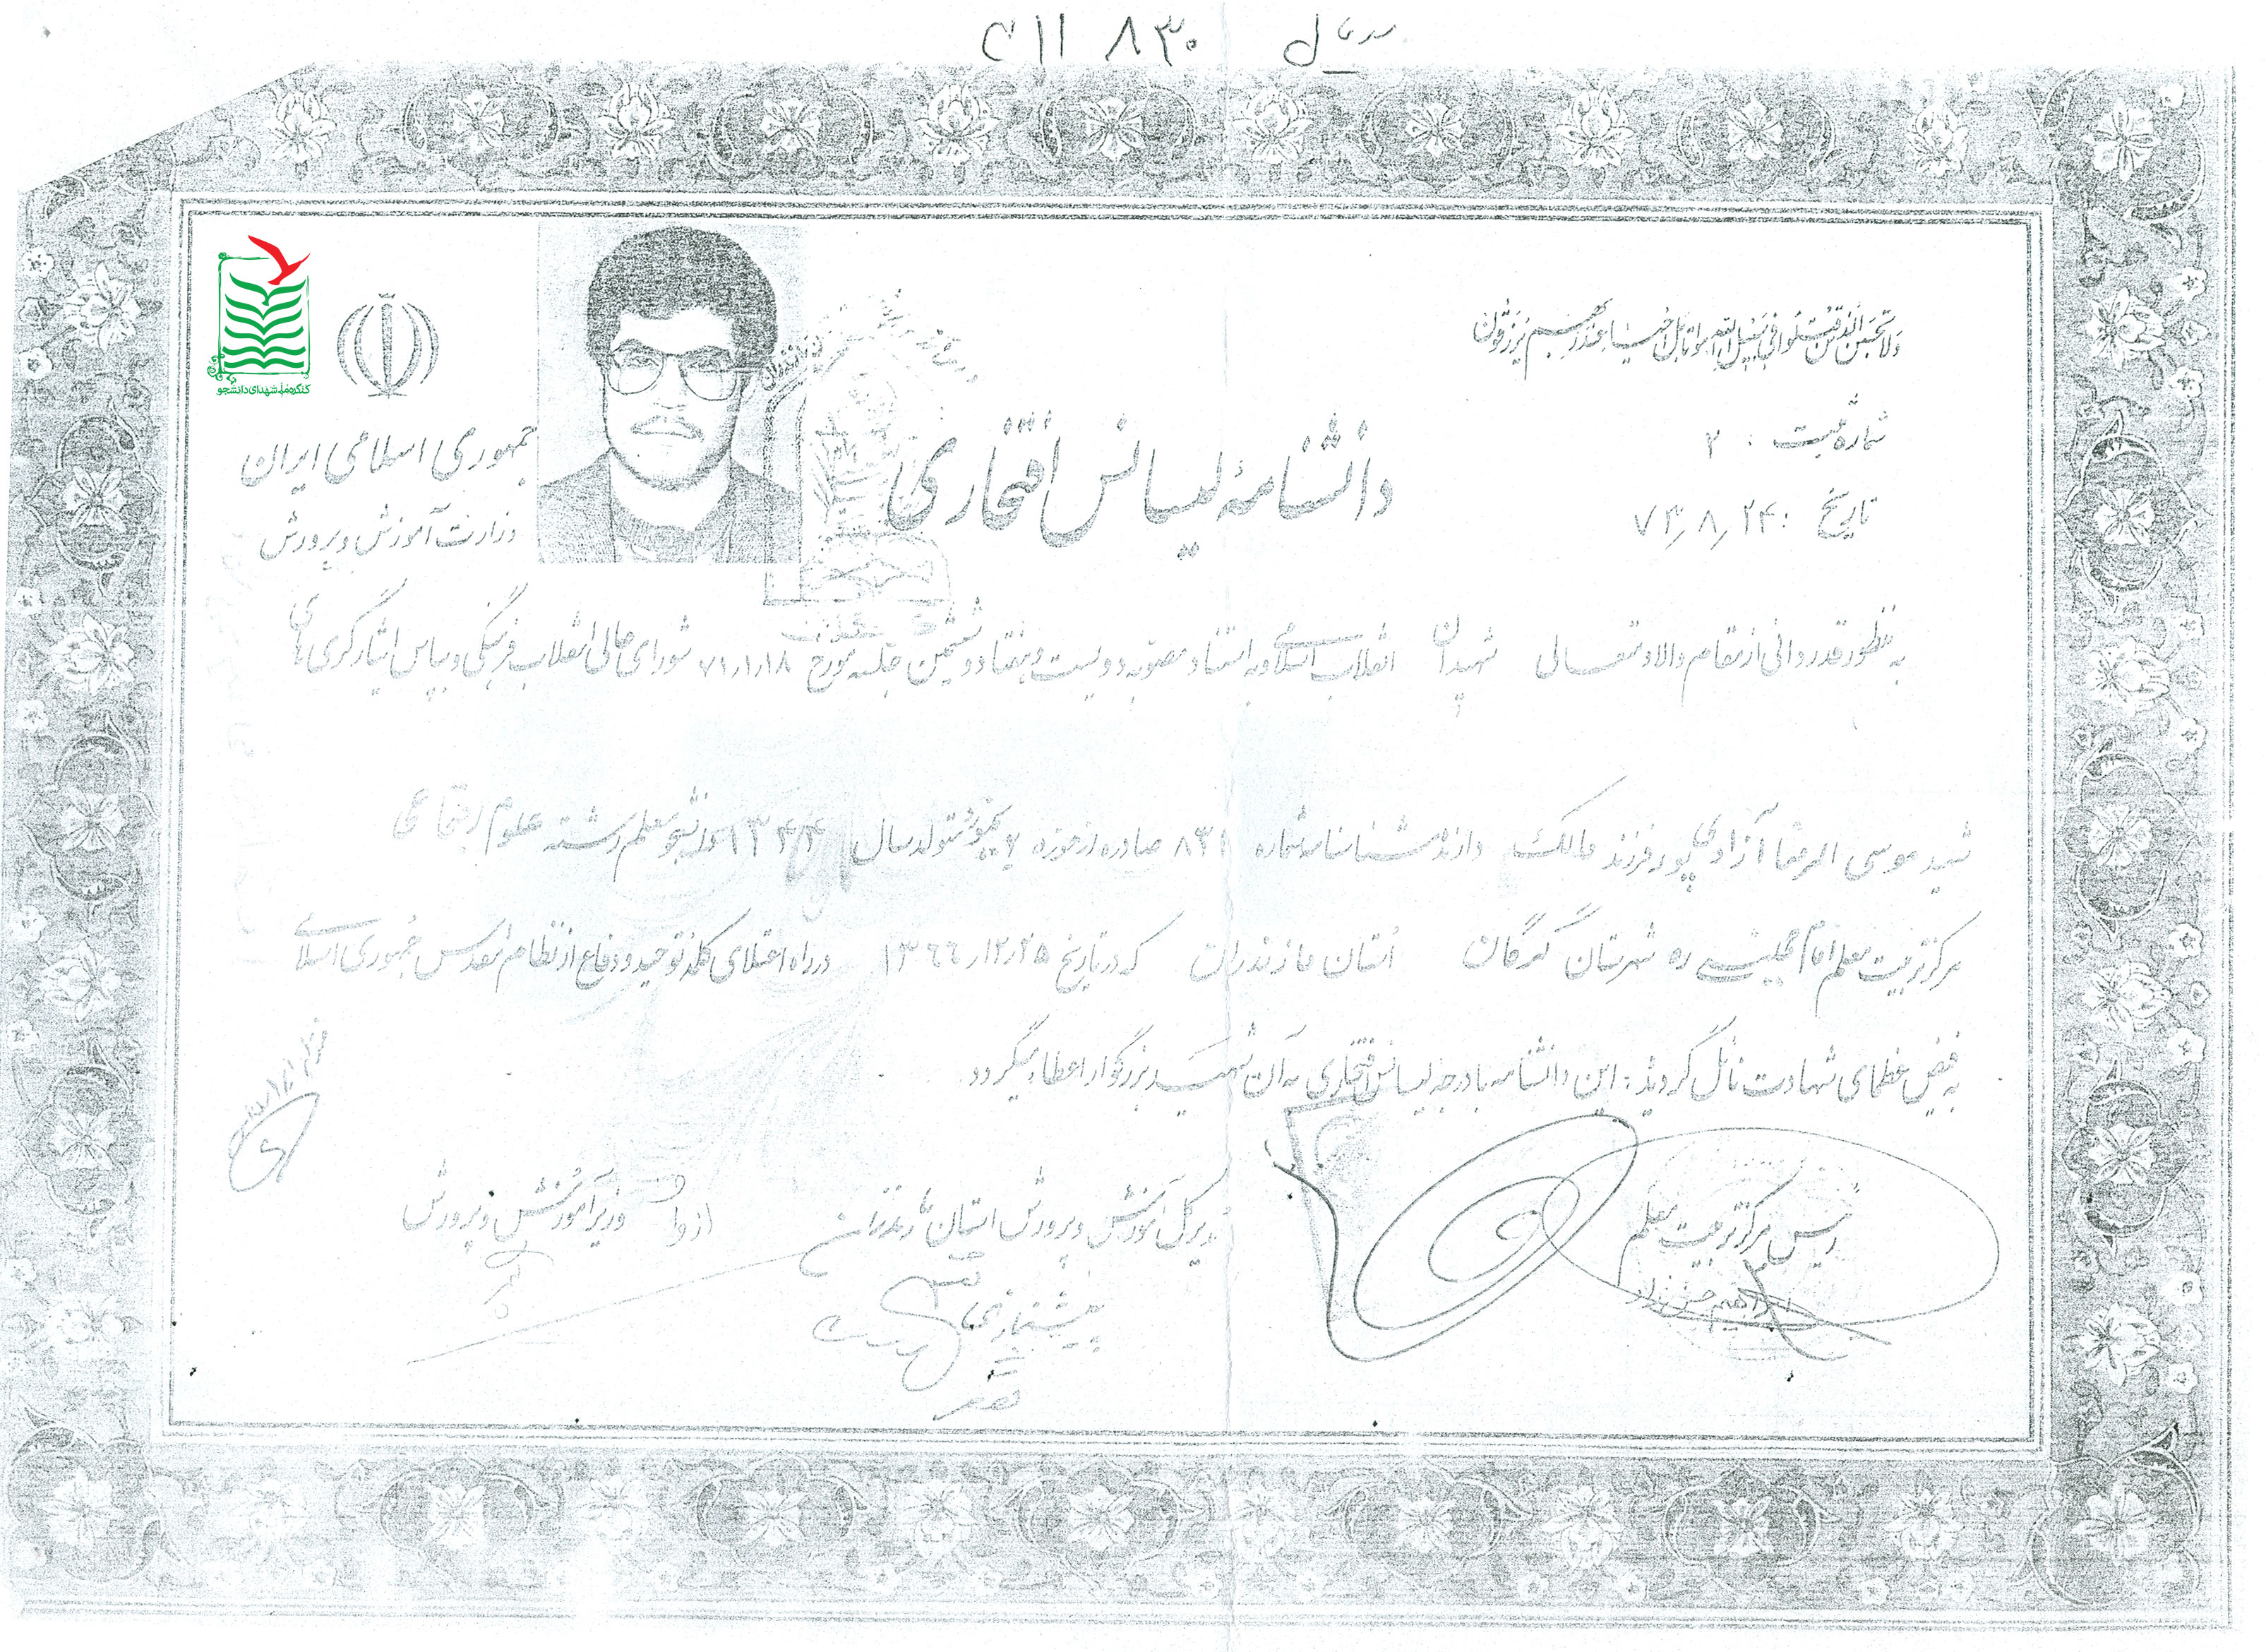 ۸۳۰
ولا تحسبن الذین قتلوا فی سبیل الله امواتا بل احیاء عند ربهم یرزقون
شماره ثبت : ۲
تاریخ : ۷۳٫۸٫۲۴
کنگره ملی شهدای دانشجو
جمهوری اسلامی ایران
وزارت آموزش و پرورش
دانشنامه لیسانس افتخاری
به منظور قدردانی از مقام والا و متعالی شهیدان انقلاب اسلامی و به استناد مصوبه دویست و هفتاد و ششمین جلسه مورخ ۷۱٫۱٫۱۸ شورای عالی انقلاب فرهنگی و بپاس ایثارگری های
شهید موسی الرضا آزادی پور فرزند مالک دارنده شناسنامه شماره ۸۳۱ صادره از حوزه ۲ متولد سال ۱۳۴۴ دانشجو معلم رشته علوم اجتماعی
مرکز تربیت معلم امام خمینی ره شهرستان گرگان استان مازندران که در تاریخ ۱۳۶۶٫۱۲٫۲۵ در راه اعتلای کلمه توحید و دفاع از نظام مقدس جمهوری اسلامی
به فیض عظمای شهادت نائل گردید، این دانشنامه با درجه لیسانس افتخاری به آن شهید بزرگوار اعطاء میگردد
رئیس مرکز تربیت معلم
مدیر کل آموزش و پرورش استان مازندران
از طرف وزیر آموزش و پرورش